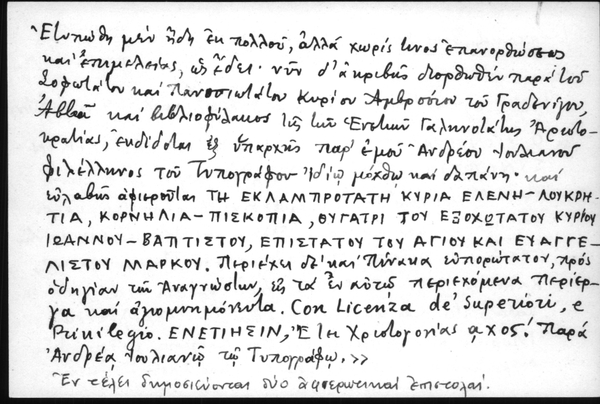 Ἐτυπώθη μὲν ἤδη ἐκ πολλοῦ, ἀλλὰ χωρίς τινος ἐπανορθώσεως
καὶ ἐπιμελείας, ὡς ἔδει· νῦν δ' ἀκριβῶς διορθωθὲν παρὰ τοῦ
Σοφωτάτου καὶ Πανοσιωτάτου Κυρίου Ἀμβροσίου τοῦ Γραδενίγου,
Ἀββᾶ καὶ βιβλιοφύλακος τῆς τῶν Ἐνετῶν Γαληνοτάτης Ἀριστο-
κρατίας, ἐκδίδοται ἐξ ὑπαρχῆς παρ' ἐμοῦ Ἀνδρέου Ἰουλιανοῦ
φιλέλληνος τοῦ Τυπογράφου Ἰδίῳ μόχθῳ καὶ δαπάνῃ· καὶ
εὐλαβῶς ἀφιεροῦται ΤΗ ΕΚΛΑΜΠΡΟΤΑΤΗ ΚΥΡΙΑ ΕΛΕΝΗ-ΛΟΥΚΡΗ-
ΤΙΑ, ΚΟΡΝΗΛΙΑ-ΠΙΣΚΟΠΙΑ, ΘΥΓΑΤΡΙ ΤΟΥ ΕΞΟΧΩΤΑΤΟΥ ΚΥΡΙΟΥ
ΙΩΑΝΝΟΥ-ΒΑΠΤΙΣΤΟΥ, ΕΠΙΣΤΑΤΟΥ ΤΟΥ ΑΓΙΟΥ ΚΑΙ ΕΥΑΓΓΕ-
ΛΙΣΤΟΥ ΜΑΡΚΟΥ. Περιέχει δὲ καὶ Πίνακα εὐπορώτατον, πρὸς
ὁδηγίαν τῶν Ἀναγνωστῶν, εἰς τὰ ἐν αὐτῷ περιεχόμενα περίερ-
γα καὶ ἀξιομνημόνευτα. Con Licenza de' Superiori, e
Priuilegio. ΕΝΕΤΙΗΣΙΝ, Ἔτει Χριστογονίας αχος! Παρὰ
Ἀνδρέᾳ Ἰουλιανῷ τῷ Τυπογράφῳ.>>
Ἐν τέλει δημοσιεύονται δύο ἀφιερωτικαὶ ἐπιστολαί.